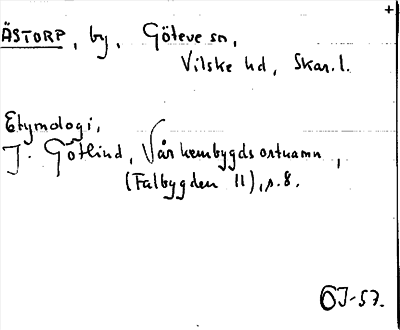 +
ÄSTORP, by, Göteve sn,
Vilske hd, Skar.l.
Etymologi,
J. Götlind, Vår hembygds ortnamn,
(Falbygden II), s. 8.
ÖJ-57.